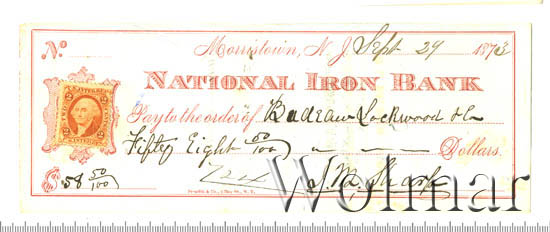 No.
Morristown, N. J. Sept 29 1873
NATIONAL IRON BANK
Pay to the order of Badeau Lockwood & Co
Fifty Eight 50/100 Dollars.
$58 50/100
Wolmar